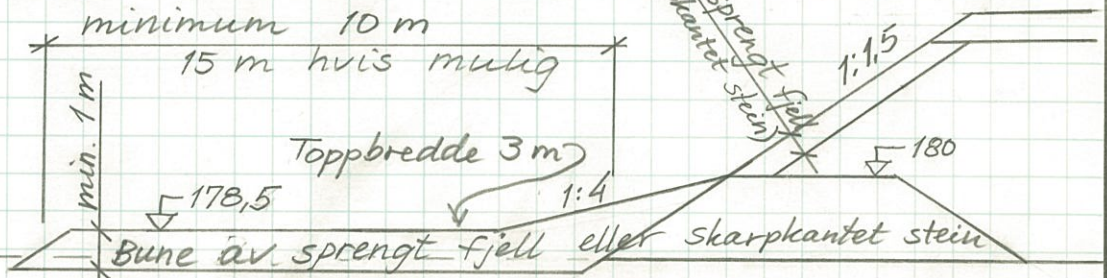 minimum 10 m
15 m hvis mulig
min. 1 m
sprengt fjell
kantet stein)
1:1,5
Toppbredde 3 m
180
178,5
1:4
Bune av sprengt fjell eller skarpkantet stein